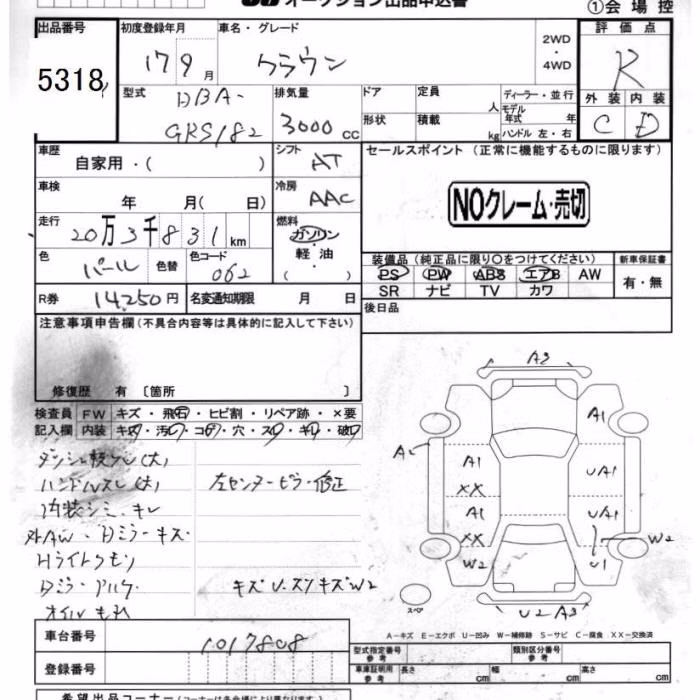 オークション出品申込書
①会場控
出品番号 初度登録年月 車名・グレード 評価点
5318 17 9月 クラウン 2WD・4WD R
型式 DBA- 排気量 ドア 定員 人 ディーラー・並行 外装 内装
GRS182 3000cc 形状 積載 kg モデル年式 年 ハンドル 左・右 C D
車歴 シフト セールスポイント(正常に機能するものに限ります)
自家用・( ) AT
車検 冷房
年 月(日) AAC NOクレーム・売切
走行 燃料
20万3千831km ガソリン・軽油・( )
色 色替 色コード 装備品(純正品に限り○をつけてください) 新車保証書
パール 062 PS PW ABS エアB AW 有・無
R券 14250円 名変通知期限 月 日 SR ナビ TV カワ
注意事項申告欄(不具合内容等は具体的に記入して下さい) 後日品
修復歴 有 〔箇所 〕
検査員 FW キズ・飛石・ヒビ割・リペア跡・×要
記入欄 内装 キズ・汚レ・コゲ・穴・スレ・キレ・破レ
ハンドルスレ(大) 左センターピラー修正
内装シミ・キレ
外AW・Dミラーキズ
Hライトクモリ
キズU・スリキズW2
オイルもれ
A2
A1
A1 UA1
XX
A1 UA1
XX W2
W2 U1
スペア
U2 A3
A-キズ E-エクボ U-凹み W-補修跡 S-サビ C-腐食 XX-交換済
車台番号 1017808 型式指定番号 参考 類別区分番号 参考
登録番号 車庫証明用 参考 長さ cm 幅 cm 高さ cm
希望出品コーナー